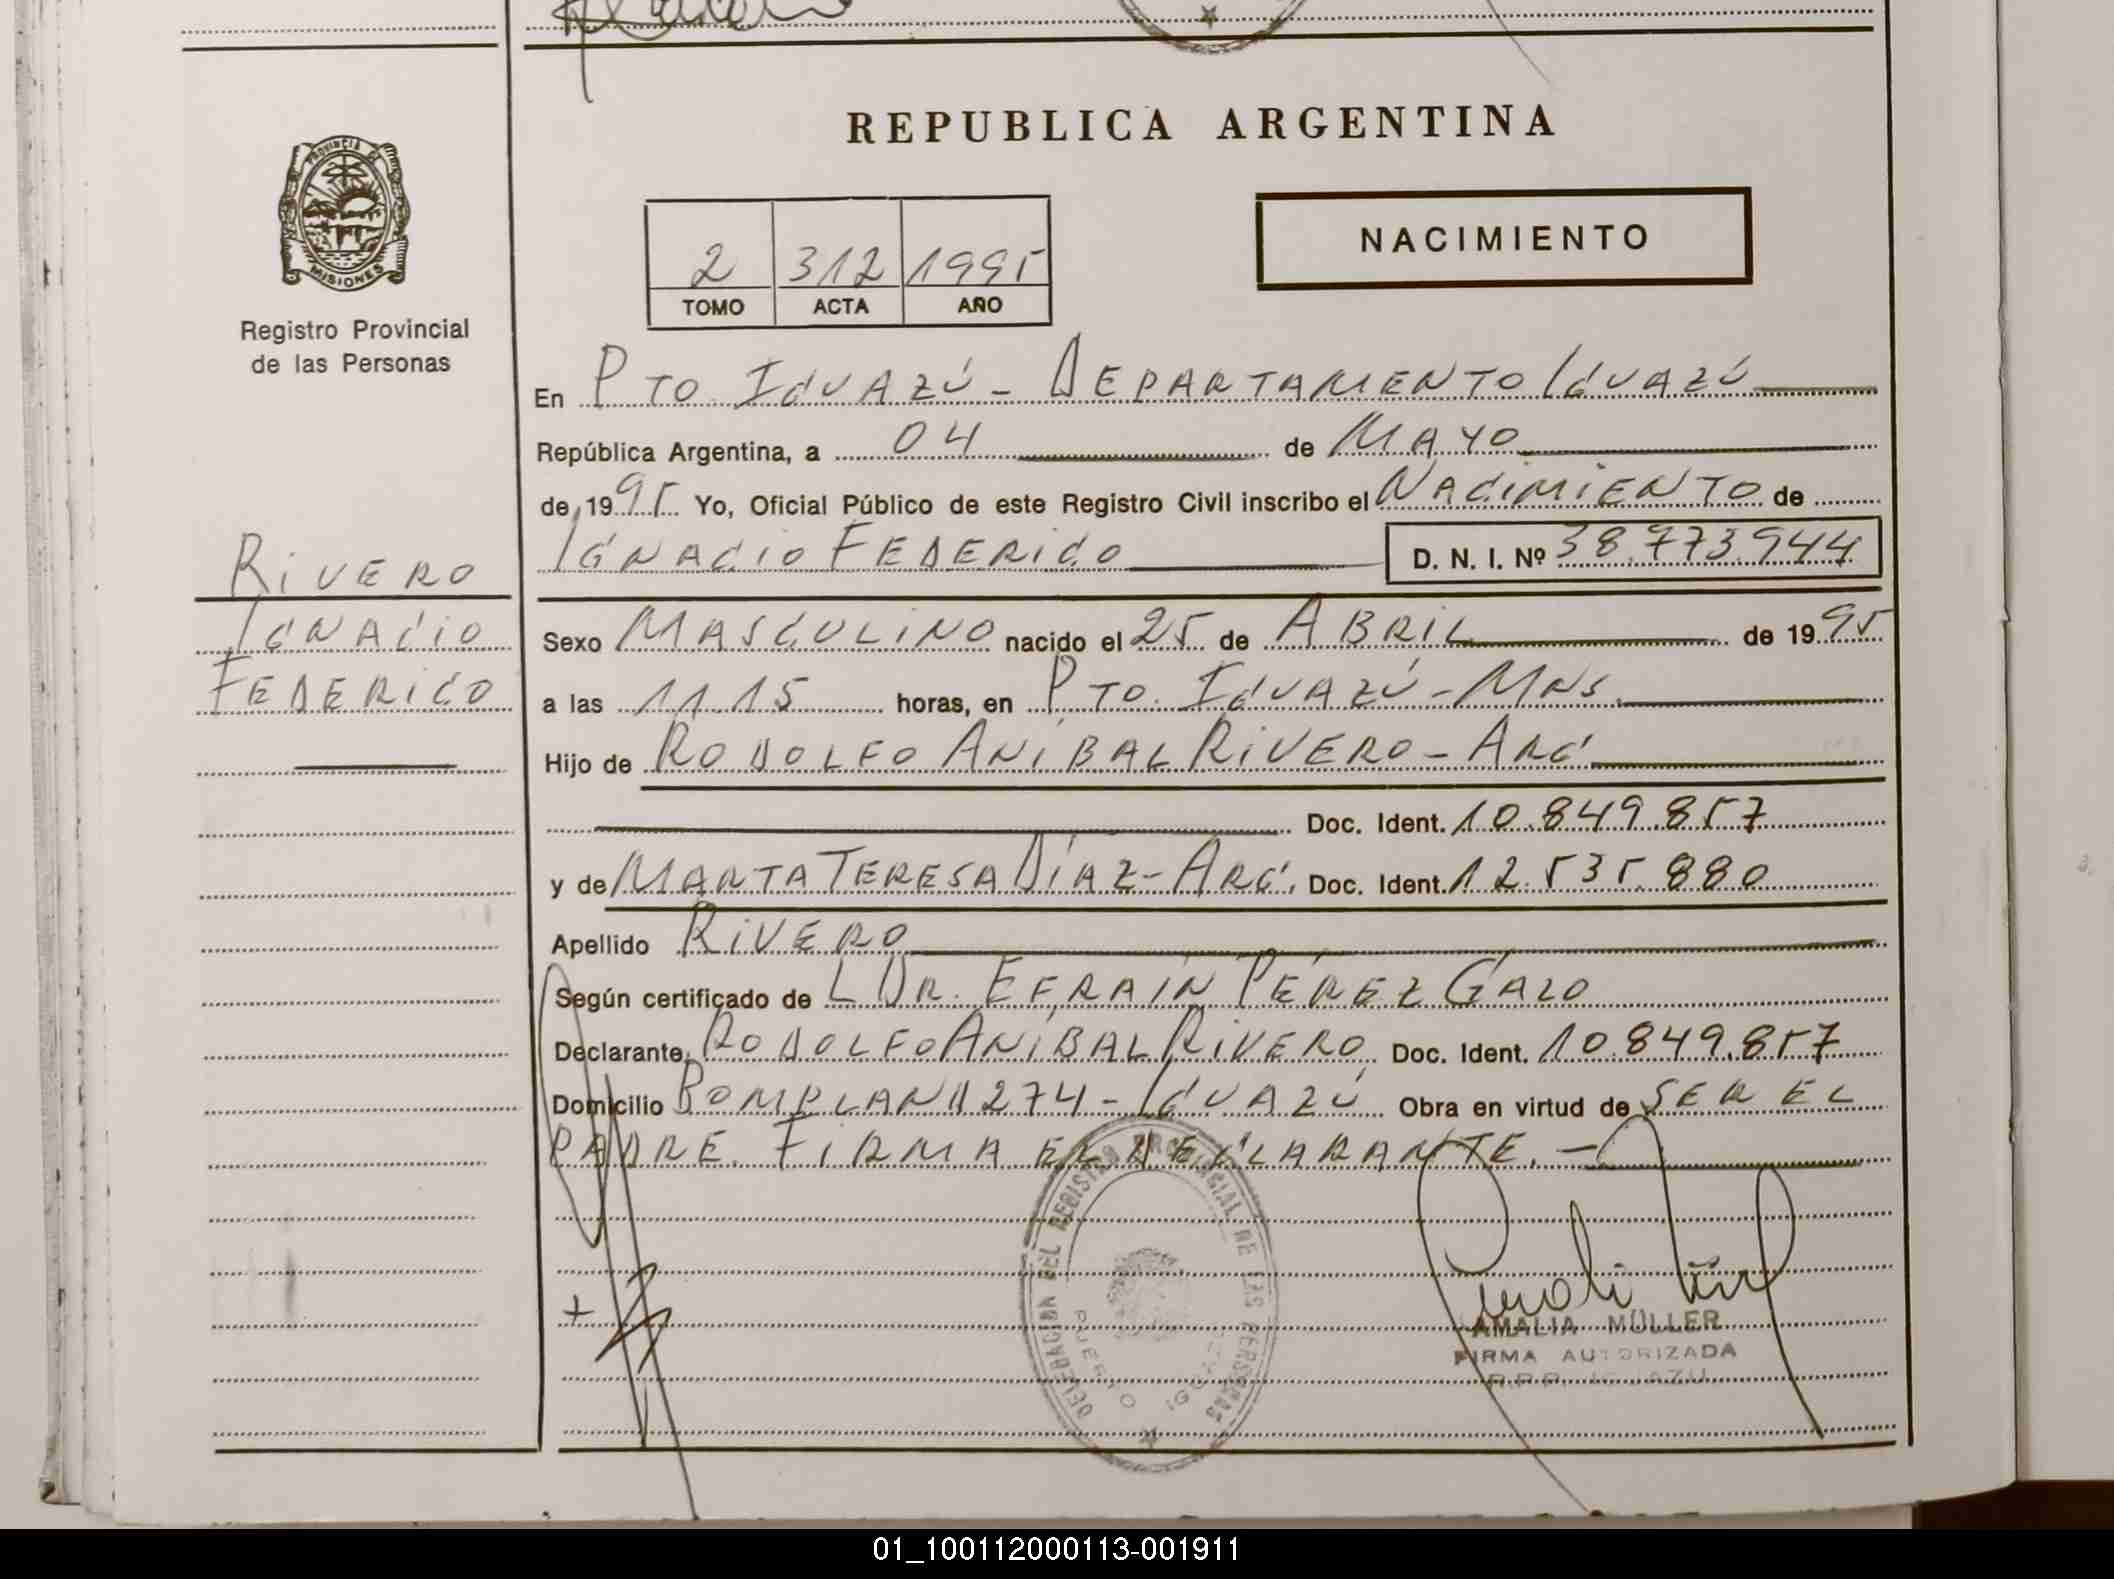 REPUBLICA ARGENTINA
PROVINCIA DE
MISIONES
Registro Provincial
de las Personas
NACIMIENTO
2 312 1995
TOMO ACTA AÑO
En PTO. IGUAZÚ - DEPARTAMENTO IGUAZÚ
República Argentina, a 04 de MAYO
de 1995 Yo, Oficial Público de este Registro Civil inscribo el NACIMIENTO de
IGNACIO FEDERICO D. N. I. Nº 38.773.944
RIVERO
IGNACIO
FEDERICO
Sexo MASCULINO nacido el 25 de ABRIL de 1995
a las 11.15 horas, en PTO. IGUAZÚ - MNS.
Hijo de RODOLFO ANÍBAL RIVERO - ARG.
Doc. Ident. 10.849.857
y de MARTA TERESA DÍAZ - ARG. Doc. Ident. 12.535.880
Apellido RIVERO
Según certificado de L DR. EFRAÍN PÉREZ GAZO
Declarante RODOLFO ANÍBAL RIVERO Doc. Ident. 10.849.857
Domicilio BOMPLAND 274 - IGUAZÚ Obra en virtud de SER EL
PADRE. FIRMA EL DECLARANTE. -
DELEGACION DEL REGISTRO PROVINCIAL DE LAS PERSONAS
PUERTO IGUAZU
AMALIA MÜLLER
FIRMA AUTORIZADA
R.P.P. IGUAZU
01_100112000113-001911